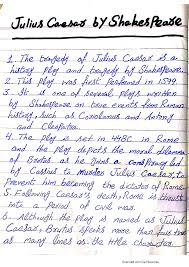 Julius Caesar by Shakespeare
1. The tragedy of Julius Caesar is a
history play and tragedy by Shakespeare.
2. This play was first performed in 1599.
3. It is one of several plays written
by Shakespeare on true events from Roman
history, such as Coriolanus and Antony
and Cleopatra.
4. The play is set in 44BC in Rome
and the play depicts the moral dilemma
of Brutus as he joins a conspiracy led
by Cassius to murder Julius Caesar, to
prevent him becoming the dictator of Rome
5. Following Caesar's death, Rome is thrust
into a period of civil war.
6. Although the play is named as Julius
Caesar, Brutus speaks more than four times
as many lines as the title character.